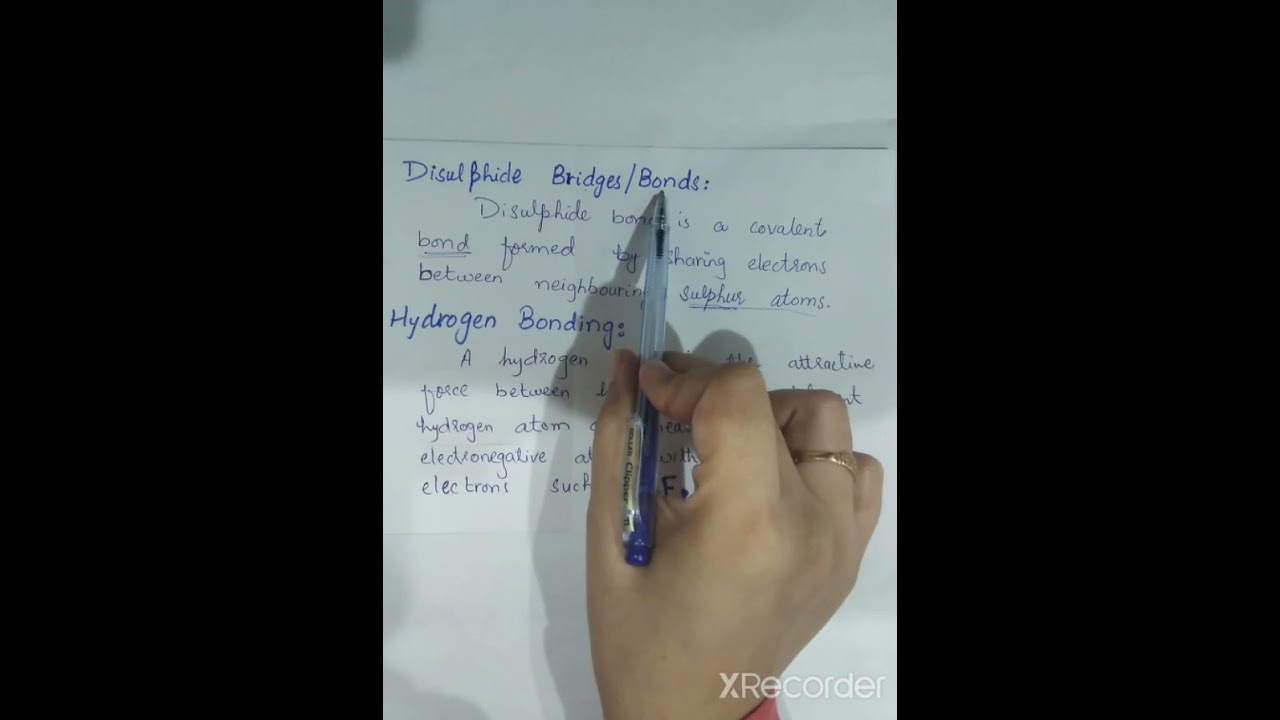 Disulphide Bridges/Bonds:
Disulphide bond is a covalent
bond formed by sharing electrons
between neighbouring sulphur atoms.
Hydrogen Bonding:
A hydrogen the attractive
force between
hydrogen atom
electronegative with
electrons such F.
XRecorder